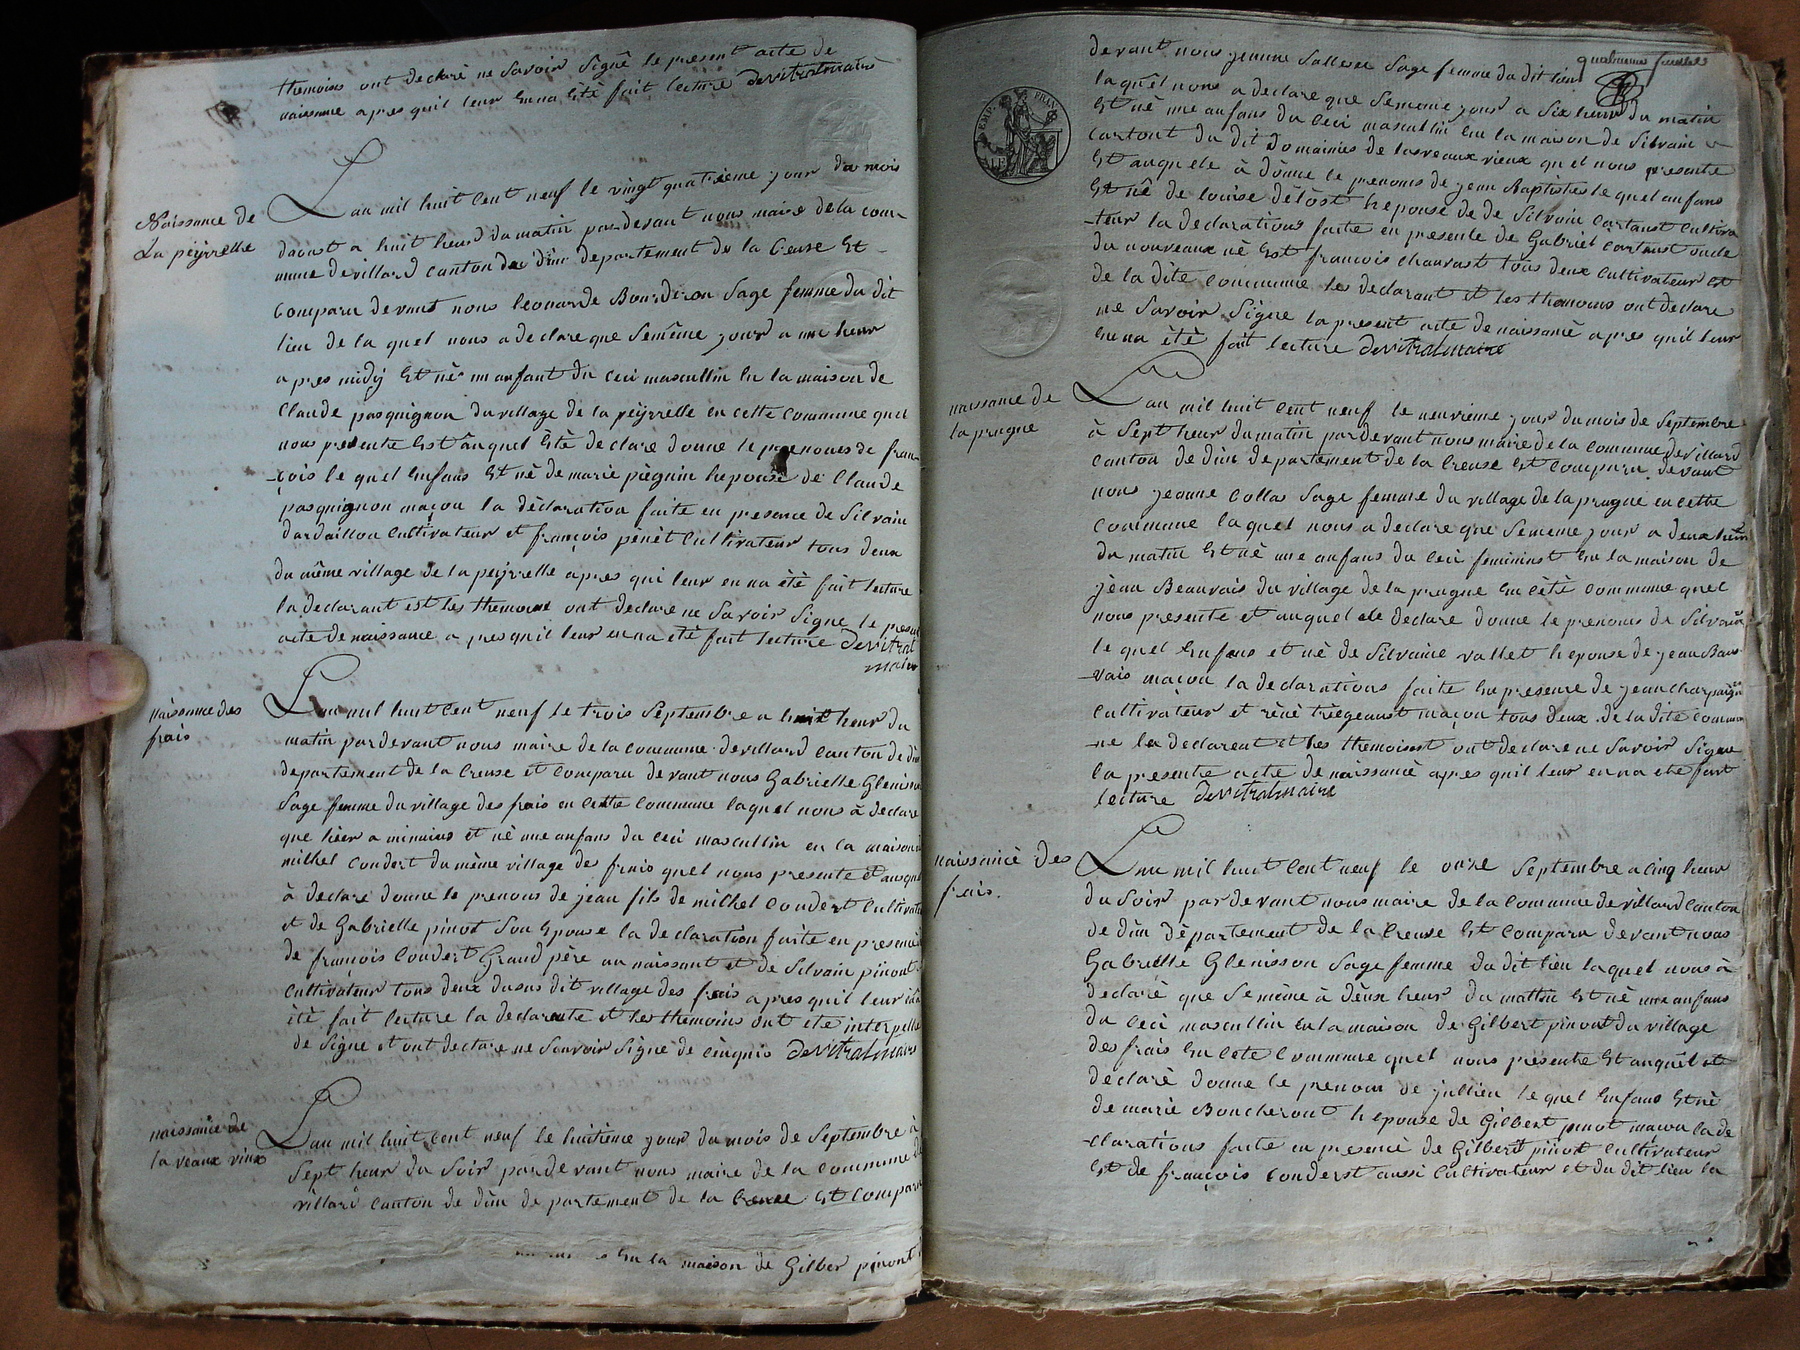 themoins ont declaré ne Savoir Signé le present acte de
naissance apres quil leur en na Eté fait lecture devitral maire
Naissance de
La peÿrelle
Lan mil huit Cent neuf le vingt quatrieme jour du mois
daout a huit heurs du matin pardevant nous maire de la com-
mune devillard canton de dun departement de la Creuse Et
Comparu devant nous leonarde Bourderon Sage femme du dit
lieu de la quel nous a declare que Semême jour a une heur
apres midÿ Et nè un anfant du Ceci mascullin En la maison de
Claude pasquignon du village de la peÿrelle en cette Commune quel
nous presente Est auquel Eté declare donne le prenomes de fran-
-çois le quel Enfans Et né de marie piegnin hepouse de Claude
pasquignon maçon la déclaration faite en presence de Silvain
dardaillon Cultivateur et françois pénét Cultivateur tous deux
du même village de la peÿrelle apres qui leur en na été fait lecture
la declarant est les themoins ont declare ne Savoir Signe le present
acte de naissance apres quil leur en na été fait lecture devitral
maire
naissance des
frais
Lan mil huit Cent neuf le trois Septembre a huit heur du
matin pardevant nous maire de la Commune de villard Canton de dun
departement de la Creuse et Comparu devant nous Gabrielle Glenisson
Sage femme du village des frais en Cette Commune laquel nous à declare
que hier a minuis et né une anfans du Ceci mascullin en la maison
michel Coudert du mème village des frais quel nous presente et auquel
à declare donne le prenons de jean fils de michel Coudert Cultivateur
et de Gabrielle pinot Son Epouse la declaration faite en presence
de françois Coudert Grand père au naissant et de Silvain pinont
Cultivateur tous deux du sus dit village des frais apres quil leur
été fait lecture la declarante et les themoins ont ete interpelle
de Signe et ont declare ne Scavoir Signe de Cenquis devitral maire
naissance de
la veaux vieux
Lan mil huit Cent neuf le huitieme jour du mois de Septembre à
Sept heur du Soir pardevant nous maire de la Commune de
villard Canton de dun departement de la Creuse Et Comparu
En la maison de Gilber pinont
EMP. FRAN.
devant nous jeanne Sallesse Sage femme du dit lieu
laquél nous a declare que Sememe jour a Six heur du matin
Et né une anfans du Ceci mascullin En la maison de Silvain
Cartout du dit domainies de lasveaux vieux quel nous presente
Et auquele à donne le prenoms de jean Baptiste le quel anfans
Et né de louise délost hepouse de de Silvain Cartaust Cultiva
-teur la declarations faite en presente de Gabriel Cartaust oncle
du nouveaux né Est françois Chauvast tous deux Cultivateur Et
de la dite Commune les declarant et les themoins ont declare
ne Savoir Signe la present acte de naissance apres quil leur
En na été fait lecture devitral maire
naissance de
la prugne
Lan mil huit Cent neuf le neuvieme jour du mois de Septembre
à Sept heur du matin pardevant nous maire de la Commune de villard
Canton de dun departement de la Creuse Et Comparu devant
nous jeanne Collas Sage femme du village de la prugne en cette
Commune laquel nous a declare que Sememe jour a deux heur
du matin Et né une anfans du Ceci feminins En la maison de
jèan Beauvais du village de la prugne En Cété Commune quel
nous presente et auquel ele declare donne le prenoms de Silvaine
le quel Enfans et né de Silvaine vallet hepouse de jean Bau-
-vais maçon la declarations faite En presence de jean Charpaigne
Cultivateur et réné triegeaust maçon tous deux de la dite Commu
-ne la declarent et les themoisnt ont declare ne Savoir Signe
la presente acte de naissancé apres quil leur en na ete fait
lecture devitral maire
naissancé des
frais.
Lan mil huit Cent neuf le onze Septembre a Cinq heur
du Soir pardevant nous maire de la Commune de villard Canton
de dùn département de la Creuse Et Comparu devant nous
Gabrielle Glenisson Sage femme du dit lieu laquel nous à
declaré que Se même à déux heur du mattin Et né une anfans
du Ceci mascullin En la maison de Gilbert pinont du village
des frais En Cete Commune quel nous presente Et auquél ele
declaré donne le prenom de jullien le quel Enfans Et né
de marie Boncheront hepouse de Gilbert pinot maçon la de
-clarations faite en presencé de Gilbert pinot Cultivateur
Est de françois Couderst aussi Cultivateur et du dit lieu la